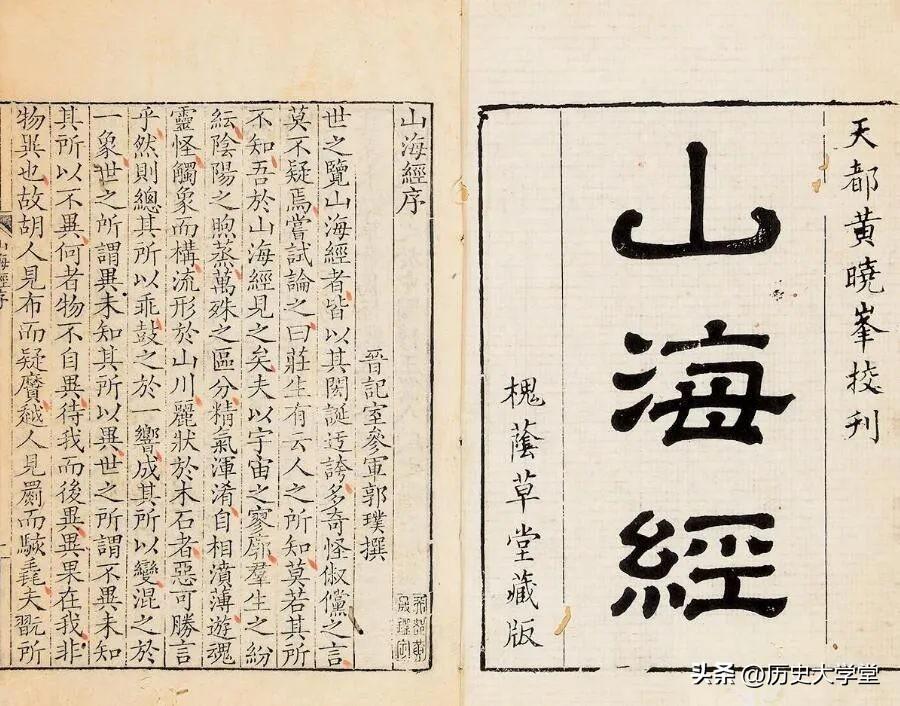 天都黄曉峯挍刊
山海經
槐蔭草堂藏版
山海經序
晉記室參軍郭璞撰
世之覽山海經者皆以其閎誕迃誇多奇怪俶儻之言
莫不疑焉嘗試論之曰莊生有云人之所知莫若其所
不知吾於山海經見之矣夫以宇宙之寥廓羣生之紛
紜陰陽之煦蒸萬殊之區分精氣渾淆自相濆薄遊魂
靈怪觸象而構流形於山川麗狀於木石者惡可勝言
乎然則總其所以乖鼓之於一響成其所以變混之於
一象世之所謂異未知其所以異世之所謂不異未知
其所以不異何者物不自異待我而後異異果在我非
物異也故胡人見布而疑黂越人見罽而駭毳夫翫所
山海經序
头条 @历史大学堂